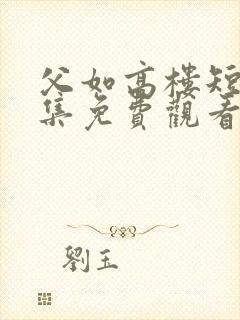 父如高樓短
集免費觀看
劉玉